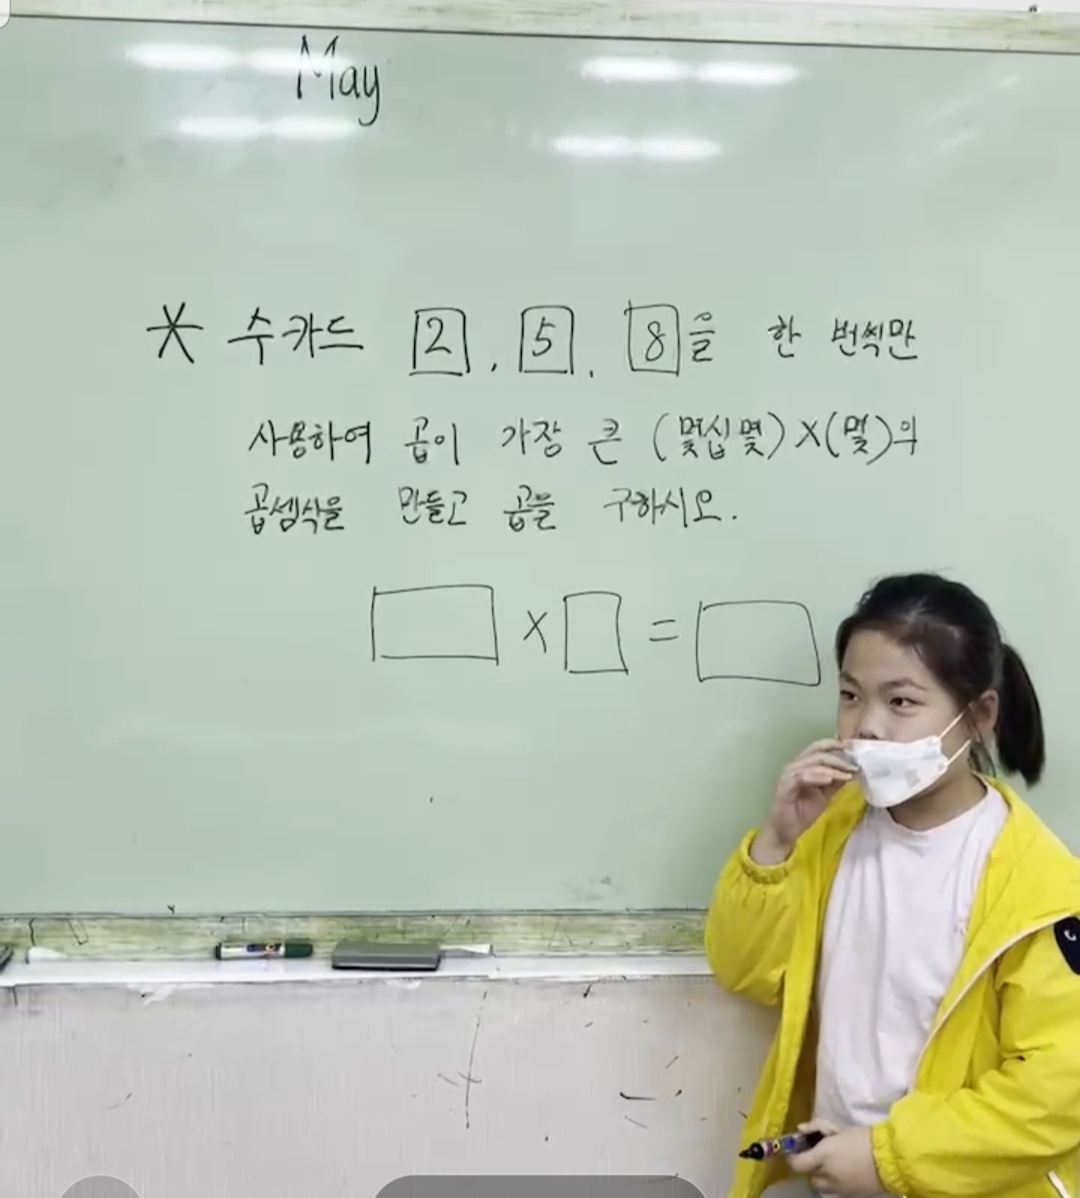 May
* 수카드 2, 5, 8을 한 번씩만
사용하여 곱이 가장 큰 (몇십몇)×(몇)의
곱셈식을 만들고 곱을 구하시오.
□ × □ = □